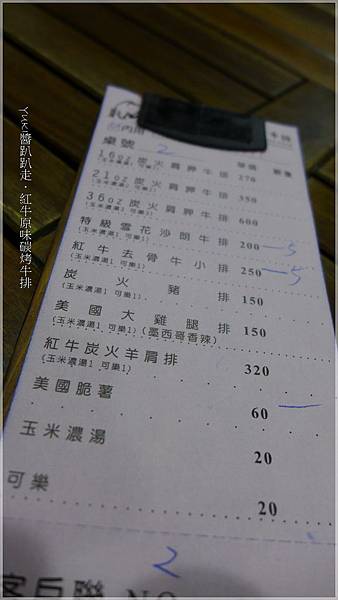 Yuki醬趴趴走．紅牛原味碳烤牛排
內用
桌號 2 單價 數量
16oz炭火肩胛牛排 270
(玉米濃湯1 可樂1)
21oz炭火肩胛牛排 350
(玉米濃湯1 可樂1)
36oz炭火肩胛牛排 600
(玉米濃湯1 可樂1)
特級雪花沙朗牛排 200 5
(玉米濃湯1 可樂1)
紅牛去骨牛小排 250 5
(玉米濃湯1 可樂1)
炭火豬排 150
(玉米濃湯1 可樂1)
美國大雞腿排 150
(玉米濃湯1 可樂1)(墨西哥香辣)
紅牛炭火羊肩排 320
(玉米濃湯1 可樂1)
美國脆薯 60
玉米濃湯 20
可樂 20
2
客戶聯 NO